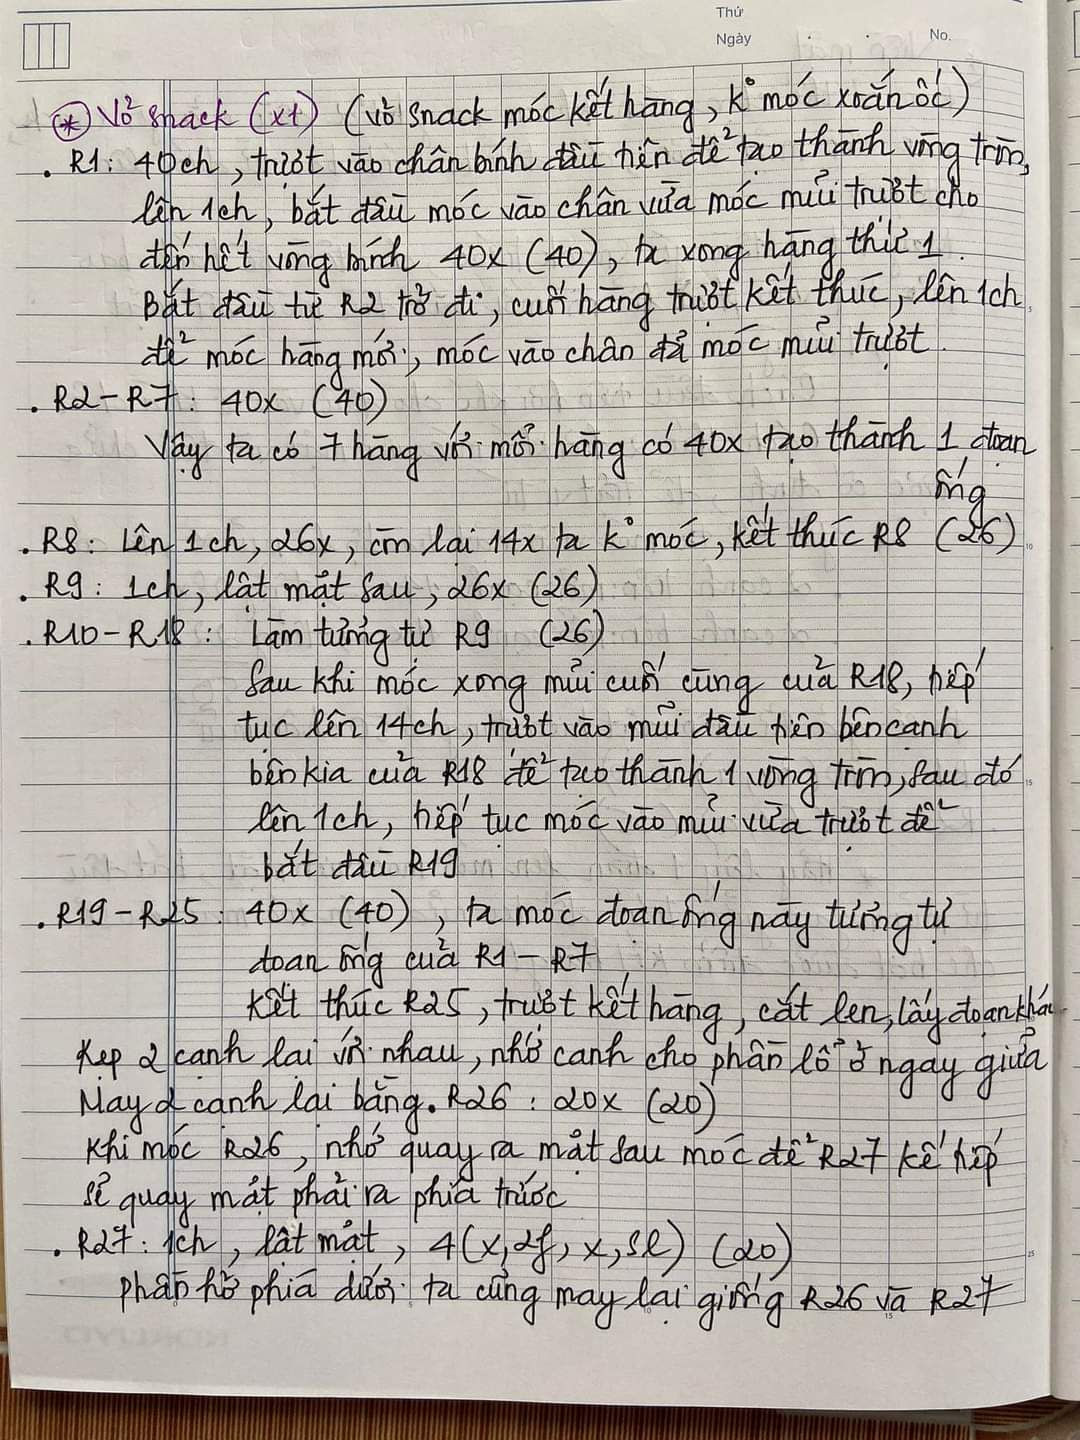 Thứ
Ngày
No.
* Vỏ snack (x1) (vỏ snack móc kết hàng, k° móc xoắn ốc)
. R1: 40ch, trượt vào chân bính đầu tiên để tạo thành vòng tròn,
lên 1ch, bắt đầu móc vào chân vừa móc mũi trượt cho
đến hết vòng bính 40x (40), ta xong hàng thứ 1.
Bắt đầu từ R2 trở đi, cuối hàng trượt kết thúc, lên 1ch
để móc hàng mới, móc vào chân đã móc mũi trượt.
. R2-R7: 40x (40)
Vậy ta có 7 hàng với mỗi hàng có 40x tạo thành 1 đoạn
ống
. R8: Lên 1ch, 26x, còn lại 14x ta k° móc, kết thúc R8 (26)
. R9: 1ch, lật mặt sau, 26x (26)
. R10-R18: Làm tương tự R9 (26)
Sau khi móc xong mũi cuối cùng của R18, tiếp
tục lên 14ch, trượt vào mũi đầu tiên bên cạnh
bên kia của R18 để tạo thành 1 vòng tròn, sau đó
lên 1ch, tiếp tục móc vào mũi vừa trượt để
bắt đầu R19
. R19-R25: 40x (40), ta móc đoạn ống này tương tự
đoạn ống của R1-R7
Kết thúc R25, trượt kết hàng, cắt len, lấy đoạn khác
Kẹp 2 cạnh lại với nhau, nhớ canh cho phần lỗ ở ngay giữa
May 2 cạnh lại bằng. R26: 20x (20)
Khi móc R26, nhớ quay ra mặt sau móc để R27 kế tiếp
sẽ quay mặt phải ra phía trước
. R27: 1ch, lật mặt, 4(x,2f,x,sl) (20)
Phần hở phía dưới ta cũng may lại giống R26 và R27